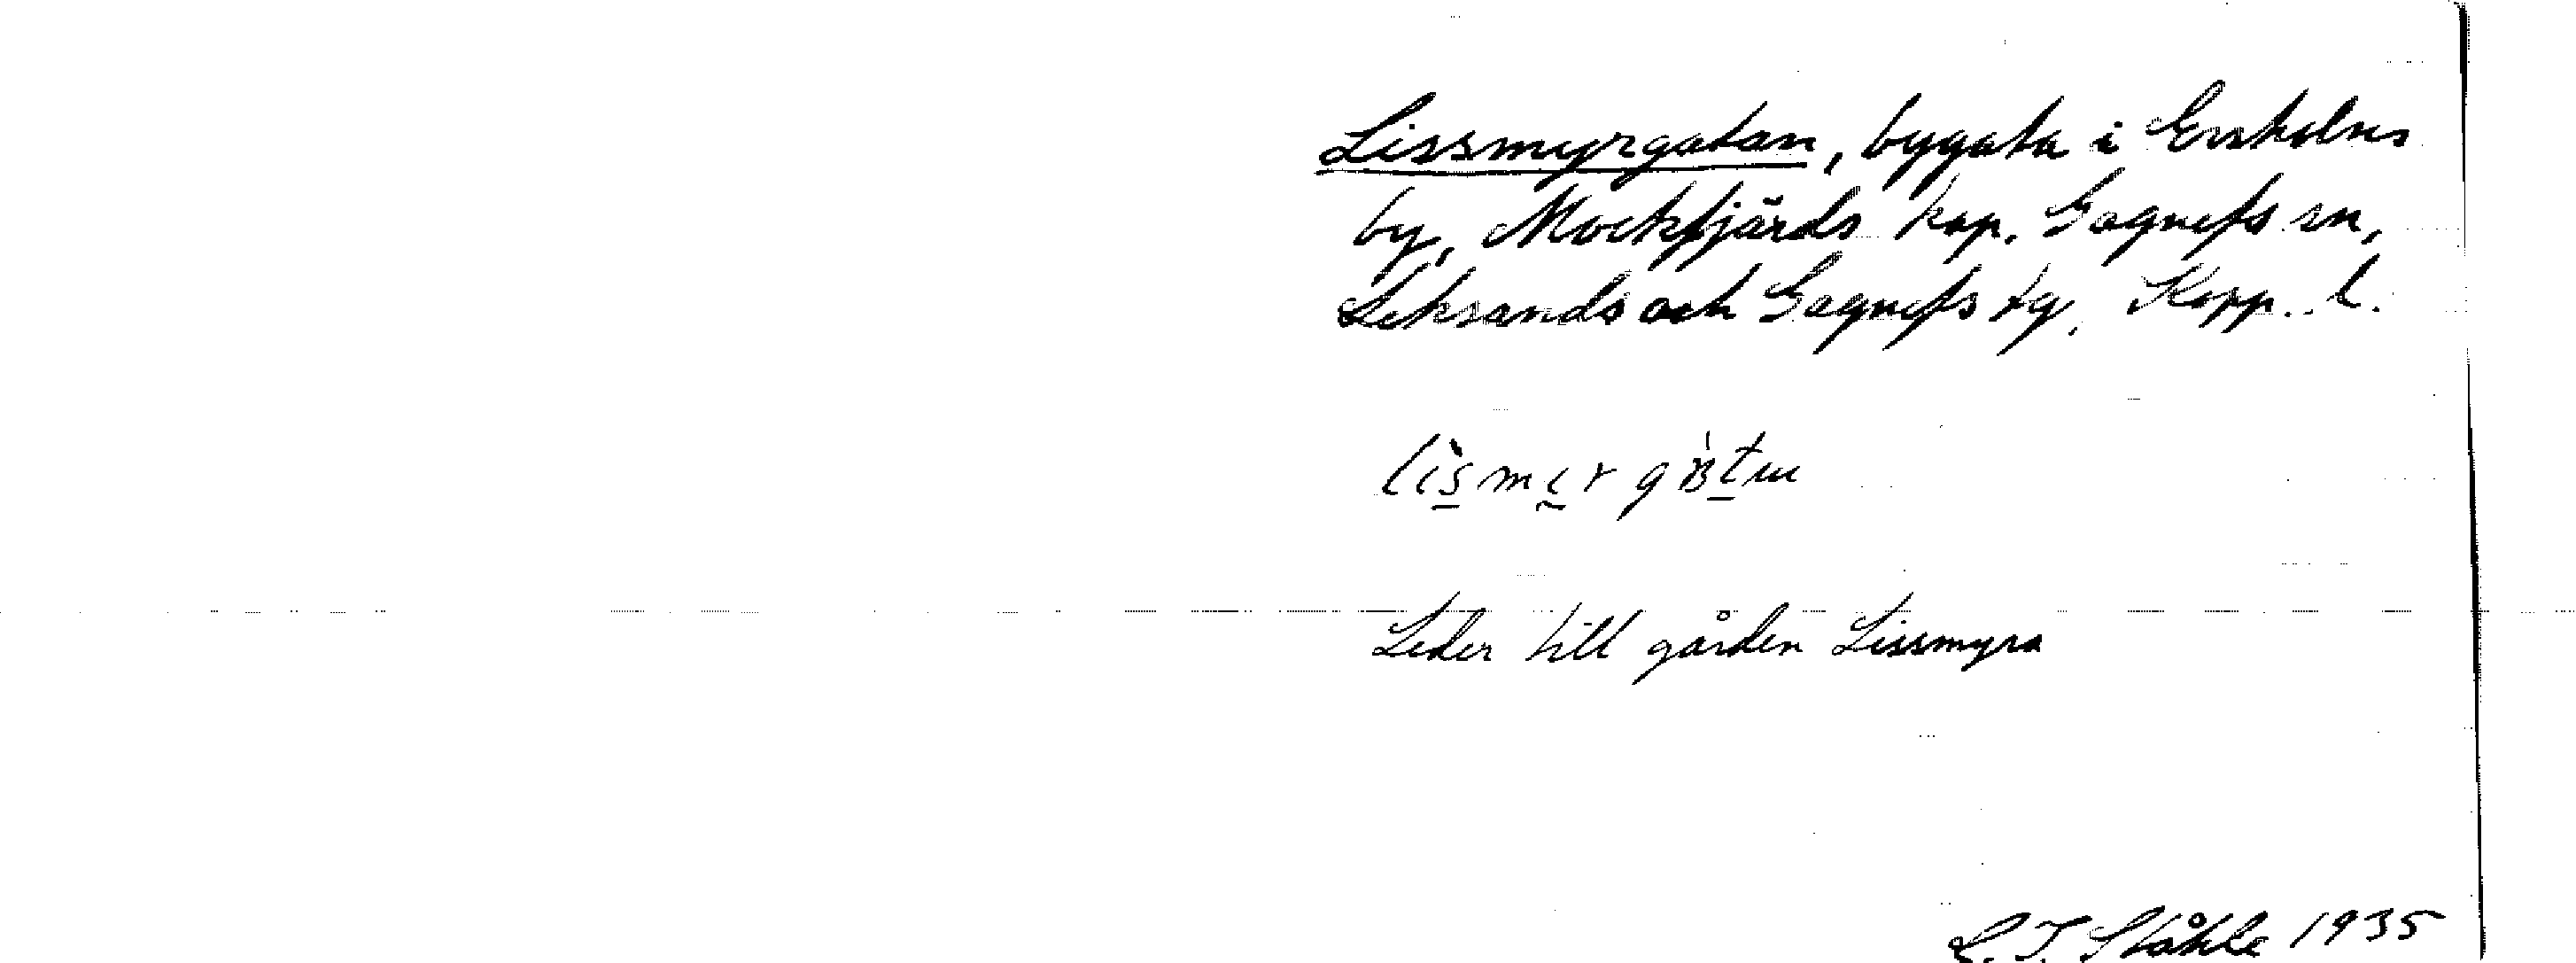 Lissmyrgatan, bygata i Ersholns
by, Mockfjärds kap. Gagnefs sn,
Leksands och Gagnefs tg, Kopp. l.
Leder till gården Lissmyra
C. I. Ståhle 1935